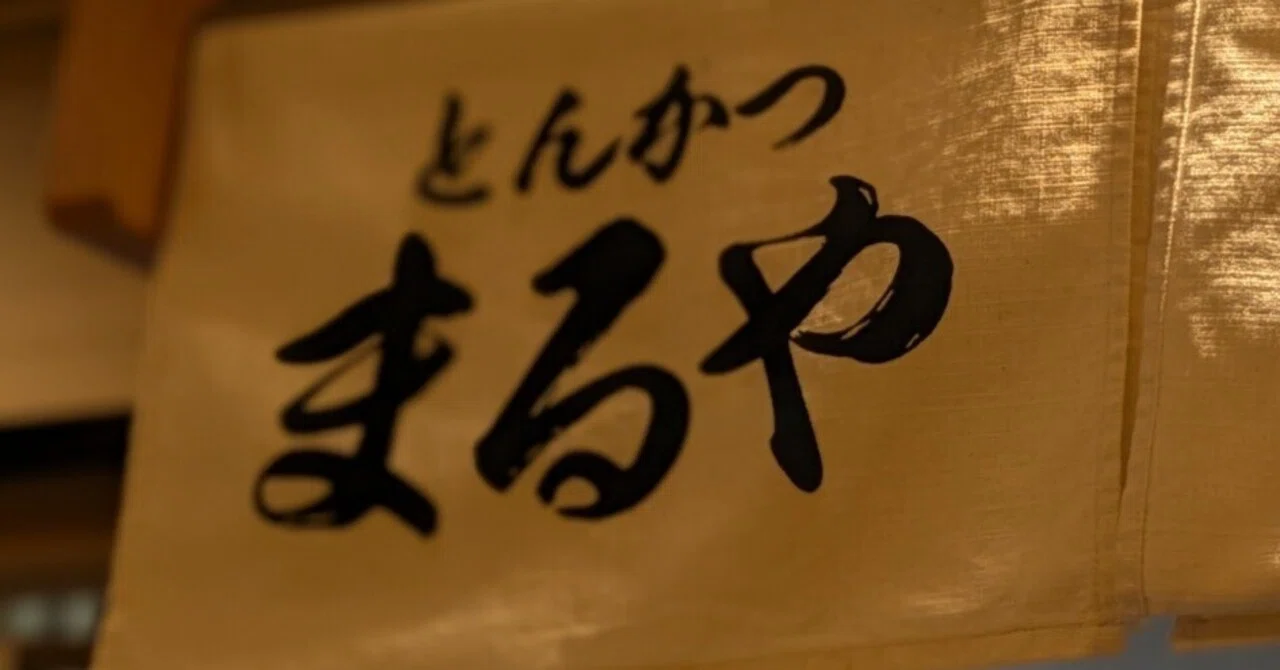 とんかつ
まるや